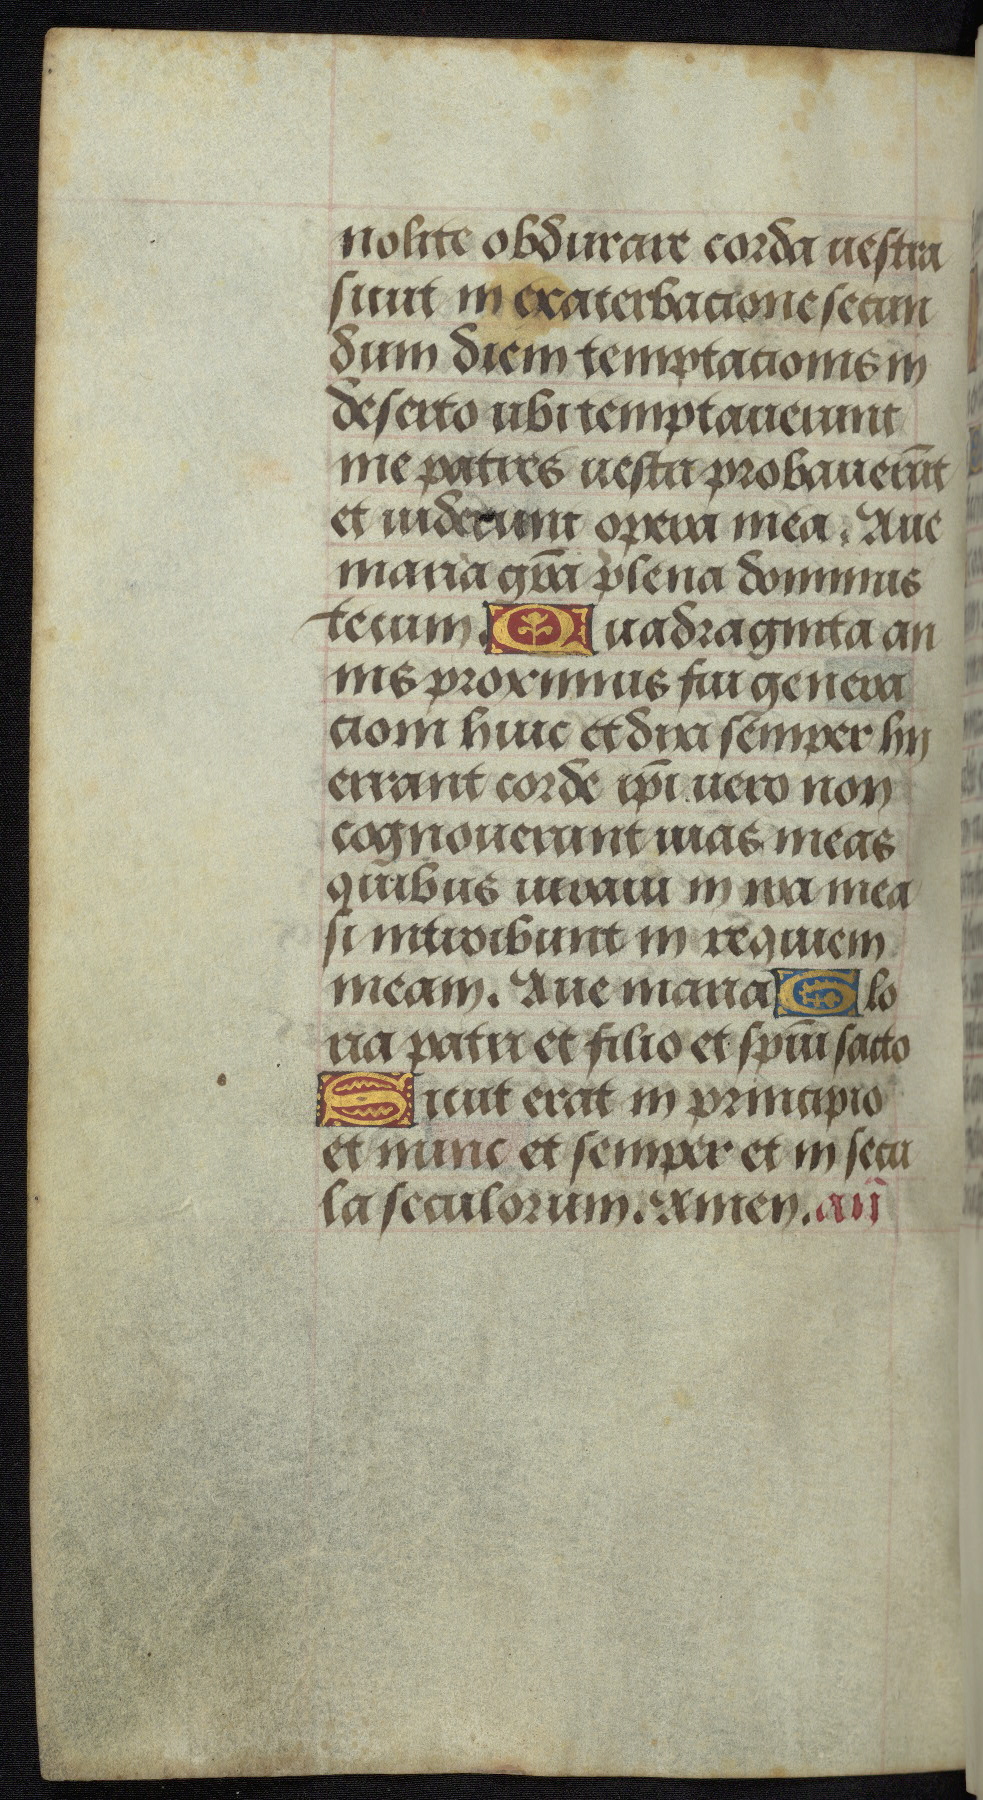 nolite obdurare corda uestra
sicut in exacerbacione secun
dum diem temptacionis in
deserto ubi temptauerunt
me patres uestri probauerūt
et uiderunt opera mea. Aue
maria grā plena dominus
tecum. Quadraginta an
nis proximus fui genera
cioni huic et dixi semper hij
errant corde ip̄i uero non
cognouerunt uias meas
quibus iuraui in ira mea
si introibunt in requiem
meam. Aue maria Glo
ria patri et filio et spūi sācto
Sicut erat in principio
et nunc et semper et in secu
la seculorum. Amen. an̄